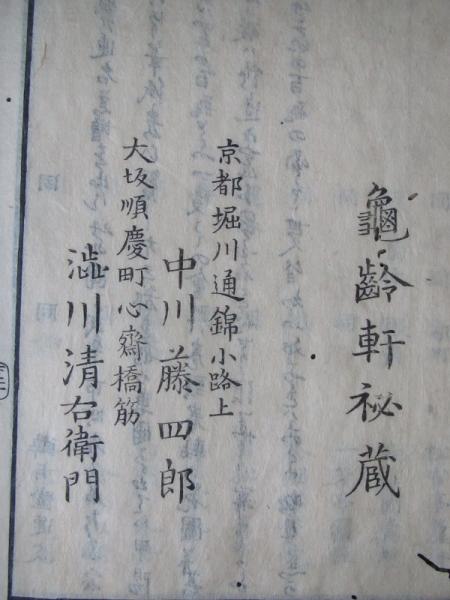 龜齡軒祕蔵
京都堀川通錦小路上
中川藤四郎
大坂順慶町心齋橋筋
澁川清右衛門